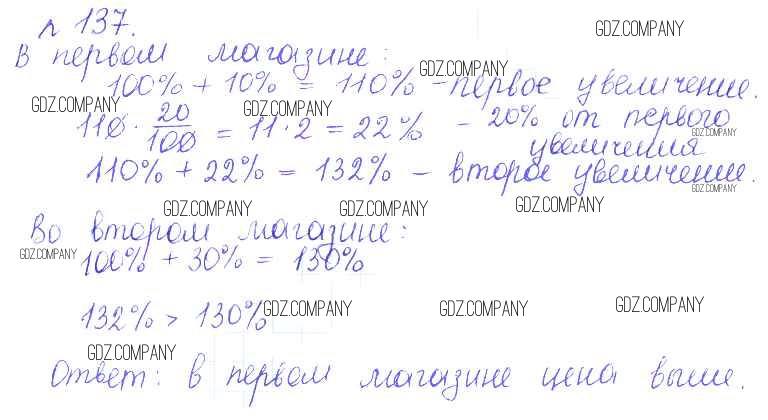 № 137.
GDZ.COMPANY
В первом магазине:
GDZ.COMPANY
100% + 10% = 110% - первое увеличение.
GDZ.COMPANY GDZ.COMPANY
110 · 20/100 = 11 · 2 = 22% - 20% от первого
GDZ.COMPANY
увеличения
110% + 22% = 132% - второе увеличение.
GDZ.COMPANY
GDZ.COMPANY GDZ.COMPANY GDZ.COMPANY
Во втором магазине:
GDZ.COMPANY
100% + 30% = 130%
132% > 130%
GDZ.COMPANY GDZ.COMPANY GDZ.COMPANY
GDZ.COMPANY
Ответ: в первом магазине цена выше.